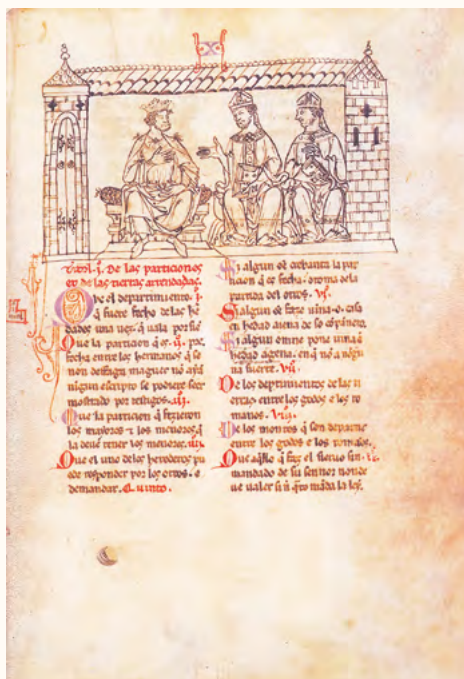 X
Titol .i. De las particiones
et de las tierras arrendadas.
Que el departimiento. i.
que fuere fecho de las he
dades una vez que vala por sie
Que la particion que es. ii. pue
fecha entre los hermanos que se
non desfaga maguer no aya
nigun escripto se podiere seer
mostrado por testigos. iii.
Que la particion que fizieron
los mayores & los menores q
la deue tener los menores. iiii.
Que el uno de los herederos pu
ede responder por los otros. e
demandar. Quinto.
Si algun omne crebanta la par
ticion que es fecha. o toma de la
partida del otro. vi.
Si algun omne faze uina o casa
en hedad aena de so companero
Si algun omne pone uina en
hedad agena. en que no a nigu
na suerte. vii.
De los departimentos de las ti
erras entre los godos e los ro
manos. viii.
De los montes que son departie
entre los godos e los romanos.
Que aquello que faze el sieruo sin
mandado de su sennor non de
ue ualer si non como manda la ley.